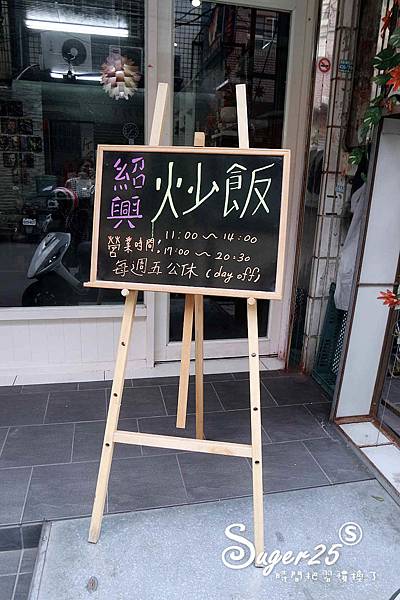 紹興 炒飯
營業時間! 11:00～14:00
17:00～20:30
每週五公休 (day off)
Suger25 S
時間把習慣換了